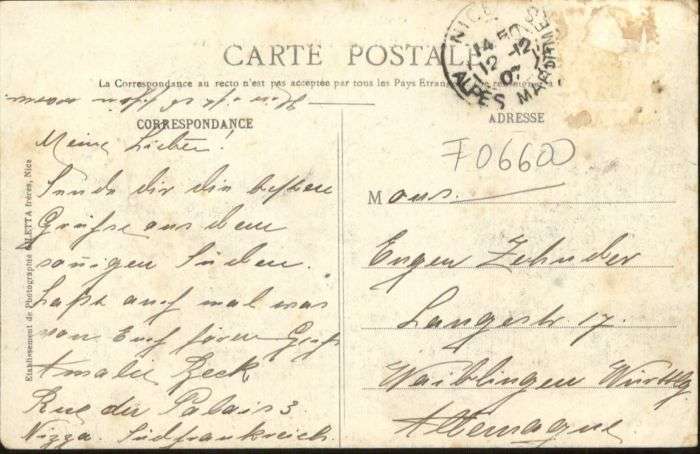 CARTE POSTALE
La Correspondance au recto n'est pas acceptée par tous les Pays Etran
NICE
14 50
12-12
07
ALPES MARITIMES
CORRESPONDANCE
ADRESSE
Meine Lieben!
Sende dir die besten
Grüsse aus dem
soñigen Süden.
Laßt auch mal was
von Euch hören Gruß
Amalie Beck
Rue du Palais 3
Nizza. Südfrankreich.
F06600
Mons.
Eugen Zehnder
Langestr 17.
Waiblingen Württbg
Allemagne.
Etablissement de Photographie GILETTA frères, Nice